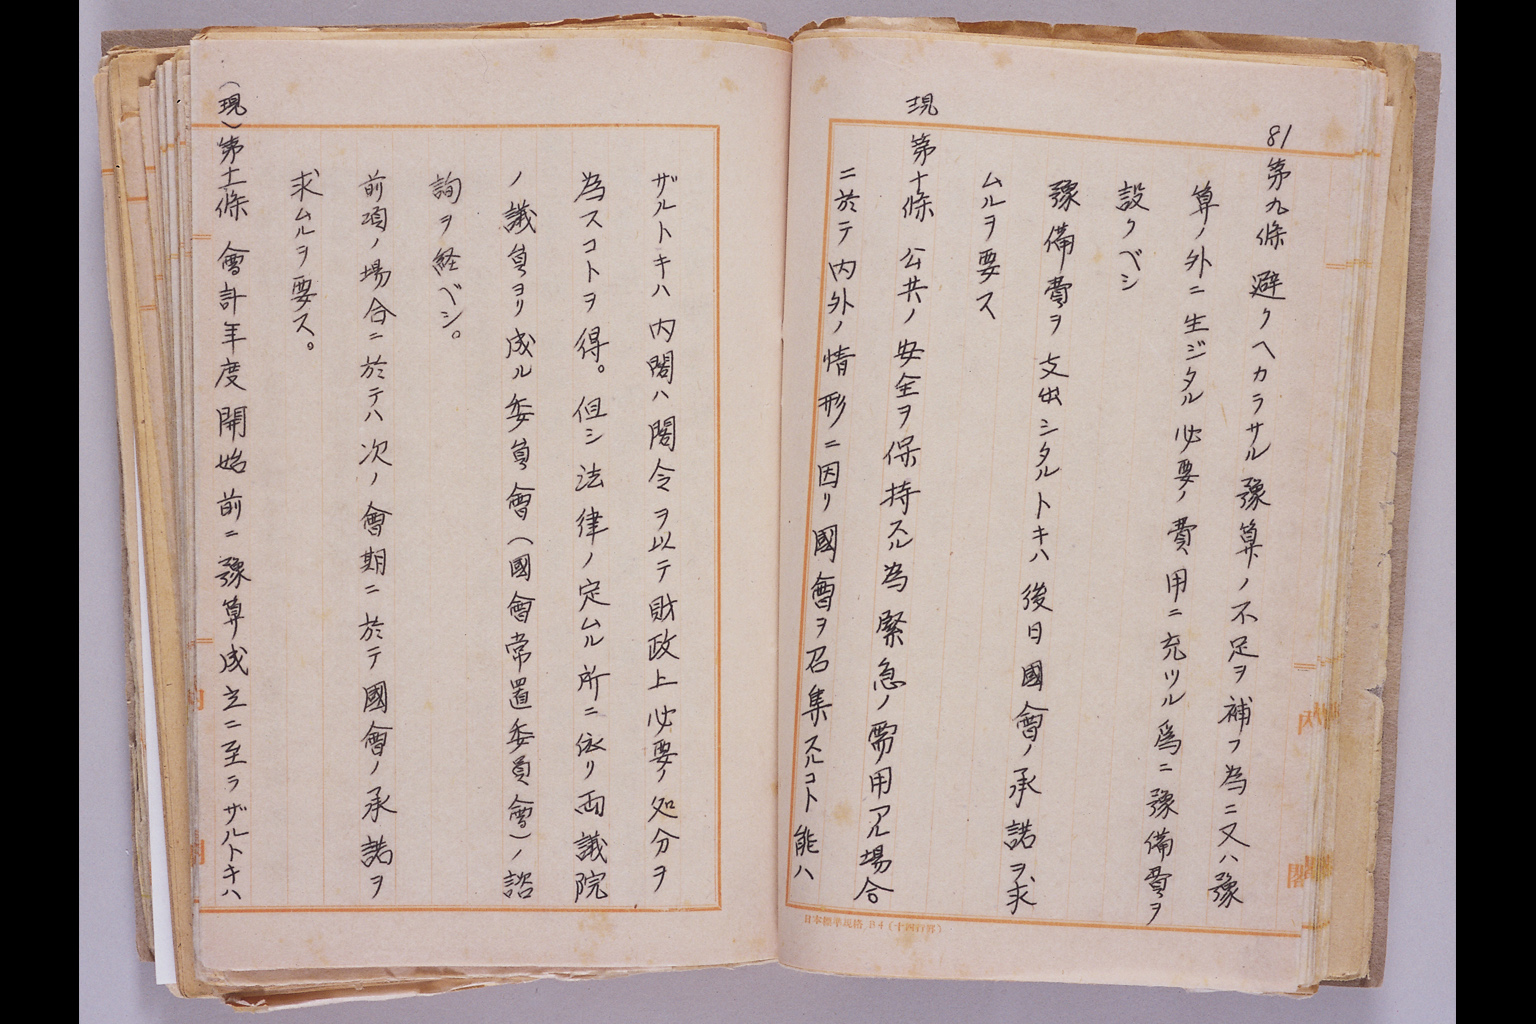 81
第九條 避クヘカラサル豫算ノ不足ヲ補フ為ニ又ハ豫
算ノ外ニ生ジタル必要ノ費用ニ充ツル爲ニ豫備費ヲ
設クベシ
豫備費ヲ支出シタルトキハ後日國會ノ承諾ヲ求
ムルヲ要ス
現
第十條 公共ノ安全ヲ保持スル為緊急ノ需用アル場合
ニ於テ内外ノ情形ニ因リ國會ヲ召集スルコト能ハ
日本標準規格B4(十四行罫)
ザルトキハ内閣ハ閣令ヲ以テ財政上必要ノ処分ヲ
為スコトヲ得。但シ法律ノ定ムル所ニ依リ両議院
ノ議員ヨリ成ル委員會(國會常置委員會)ノ諮
詢ヲ経ベシ。
前項ノ場合ニ於テハ次ノ會期ニ於テ國會ノ承諾ヲ
求ムルヲ要ス。
(現)第十一條 會計年度開始前ニ豫算成立ニ至ラザルトキハ
内
閣